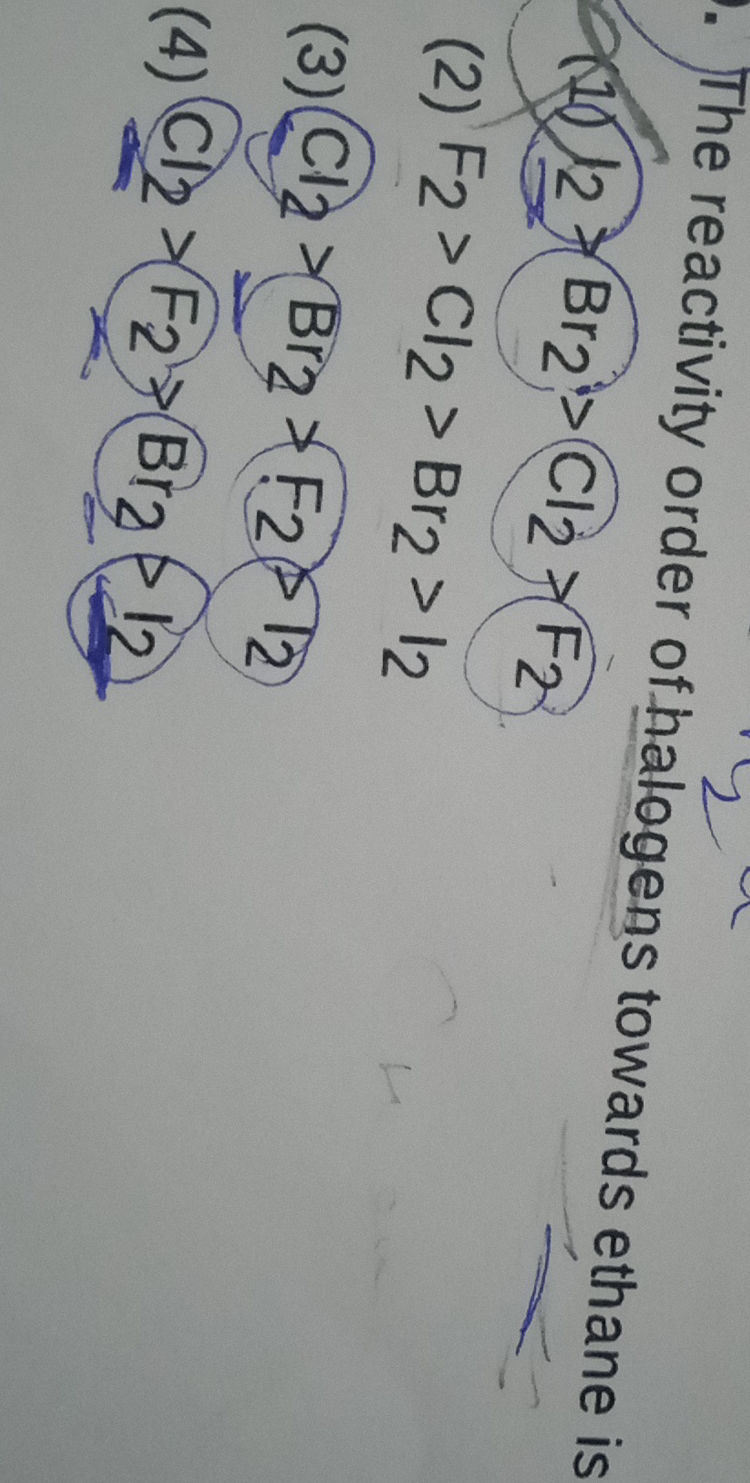 . The reactivity order of halogens towards ethane is
(1) I2 > Br2 > Cl2 > F2
(2) F2 > Cl2 > Br2 > I2
(3) Cl2 > Br2 > F2 > I2
(4) Cl2 > F2 > Br2 > I2